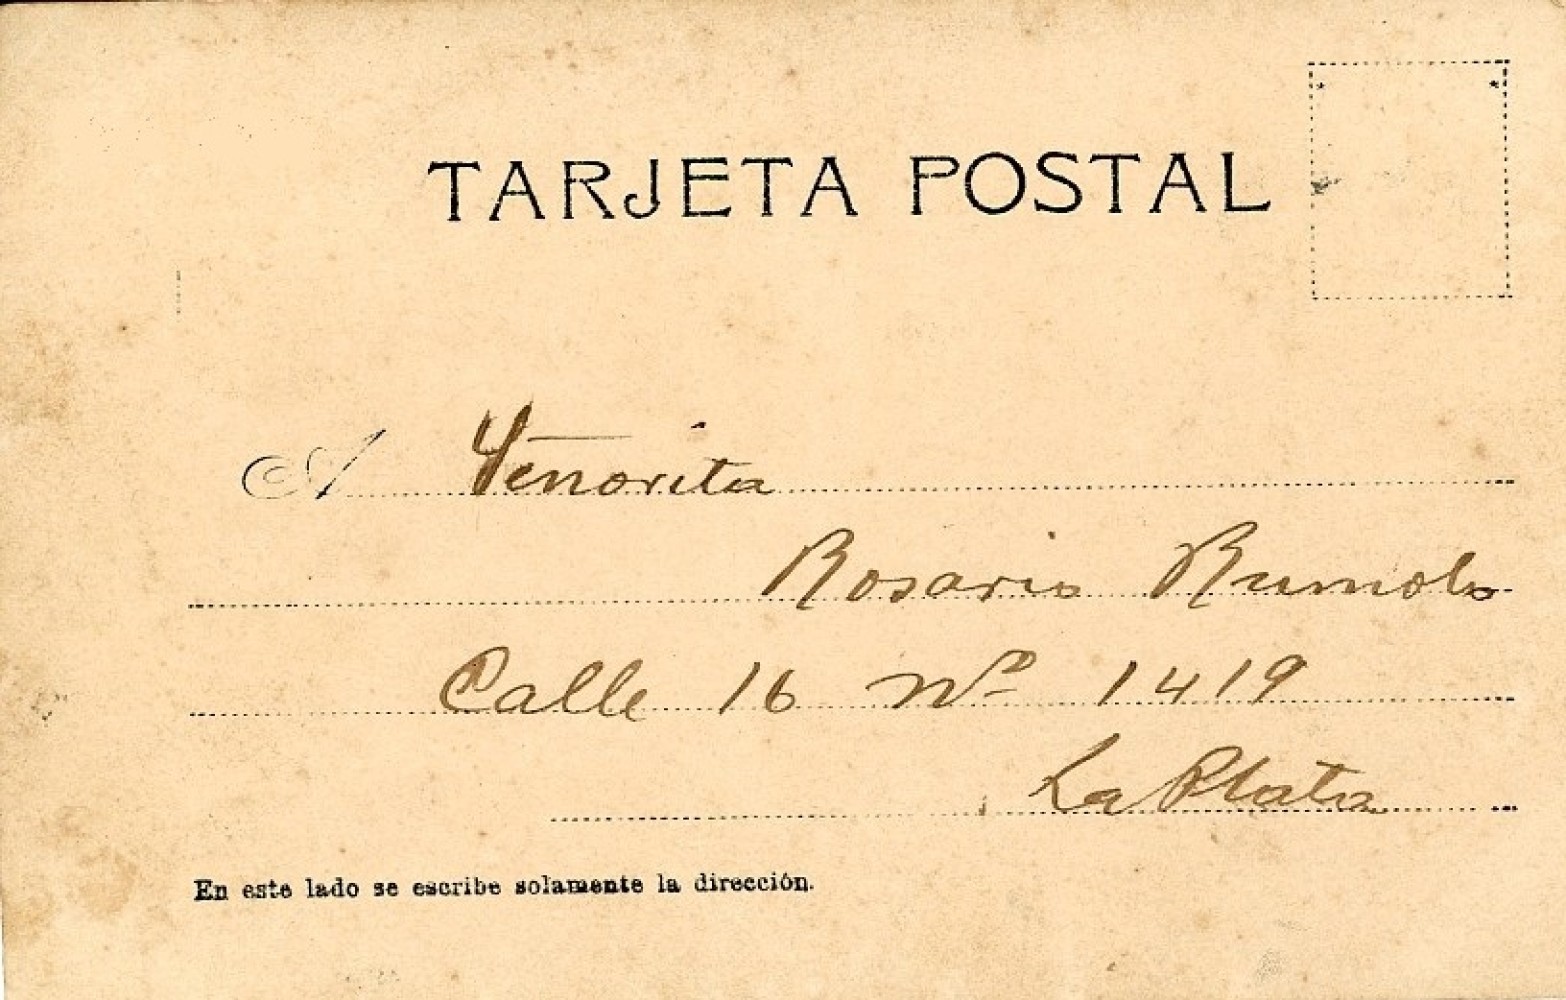 TARJETA POSTAL
A Señorita
Rosario Rumolo
Calle 16 Nº 1419
La Plata
En este lado se escribe solamente la dirección.